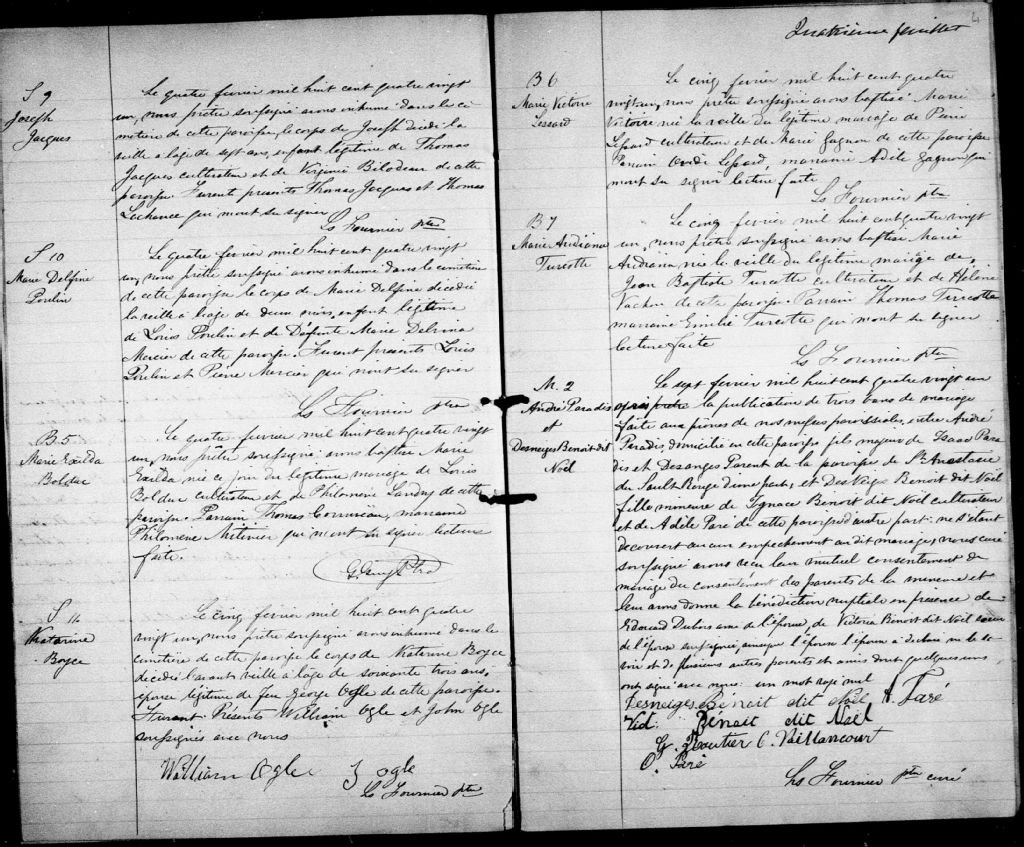 S 9
Joseph
Jacques
Le quatre fevrier mil huit cent quatre vingt
un, nous prêtre soussigné avons inhumé dans le ci-
metière de cette paroisse, le corps de Joseph décédé la
veille a lage de sept ans, enfant légitime de Thomas
Jacques cultivateur et de Virginie Bilodeau de cette
paroisse. Furent presents Thomas Jacques et Thomas
Lachance qui n'ont su signer
Ls Fournier ptre
S 10
Marie Delfine
Poulin
Le quatre fevrier mil huit cent quatre vingt
un, nous prêtre soussigné avons inhumé dans le cimetière
de cette paroisse le corps de Marie Delfine décedée
la veille à l'age de deux mois, enfant légitime
de Louis Poulin et de Défunte Marie Delvina
Mercier de cette paroisse. Furent présents Louis
Poulin et Pierre Mercier qui n'ont su signer
Ls Fournier ptre
B 5
Marie Exilda
Bolduc
Le quatre fevrier mil huit cent quatre vingt
un, nous prêtre soussigné avons baptisé Marie
Exilda née ce jour du légitime mariage de Louis
Bolduc cultivateur et de Philomène Landry de cette
paroisse Parrain Thomas marraine
Philomène qui n'ont su signer lecture
faite.
S 11
Katerine
Boyce
Le cinq fevrier mil huit cent quatre
vingt un, nous prêtre soussigné avons inhumé dans le
cimetière de cette paroisse le corps de Katerine Boyce
decédé l'avant veille à l'âge de soixante trois ans,
épouse légitime de feu George Ogle de cette paroisse.
Furent Présents William Ogle et John Ogle
soussignés avec nous
William Ogle J Ogle
Ls Fournier ptre
4
Quatrieme feuillet
B 6
Marie Victoire
Lessard
Le cinq fevrier mil huit cent quatre
vingt-un, nous prêtre soussigné avons baptisé Marie
Victoire née la veille du légitime mariage de Pierre
Lessard cultivateur et de Marie Gagnon de cette paroisse
Parrain Lessard, marraine Adèle Gagnon qui
n'ont su signer lecture faite
Ls Fournier ptre
B 7
Marie Audiana
Turcotte
Le cinq fevrier mil huit cent quatre vingt
un, nous prêtre soussigné avons baptisé Marie
Audiana née le veille du légitime mariage de
Jean Baptiste Turcotte cultivateur et de Hélène
Vachon de cette paroisse. Parrain Thomas Turcotte
marraine Emilie Turcotte qui n'ont su signer
lecture faite
Ls Fournier ptre
M. 2
André Paradis
et
Desneiges Benoit dit
Noël
Le sept fevrier mil huit cent quatre vingt un
après la publication de trois bans de mariage
faite aux prones de nos messes paroissiales, entre André
Paradis, domicilié en cette paroisse fils majeur de Isaac Para
dis et Desanges Parent de la paroisse de Ste Anastasie
du Sault-Rouge d'une part; et Des Neiges Benoit dit Noël
fille mineure de Ignace Benoit dit Noël cultivateur
et de Adèle Paré de cette paroisse d'autre part: ne s'étant
découvert aucun empechement au dit mariage, nous curé
soussigné avons reçu leur mutuel consentement de
mariage du consentement des parents de la mineure et
leur avons donné la bénédiction nuptiale en presence de
Edouard Dubois ami de l'époux, de Victoria Benoit dit Noël soeur
de l'épouse soussignée, ainsique l'époux l'épouse a declaré ne le sa
voir et de plusieurs autres parents et amis dont quelques uns
ont signé avec nous: un mot rayé nul
Desneiges Bénoit dit Noël A. Paré
Vict. Bénoit dit Noël
G. Cloutier C. Vaillancourt
O. Paré
Ls Fournier ptre curé